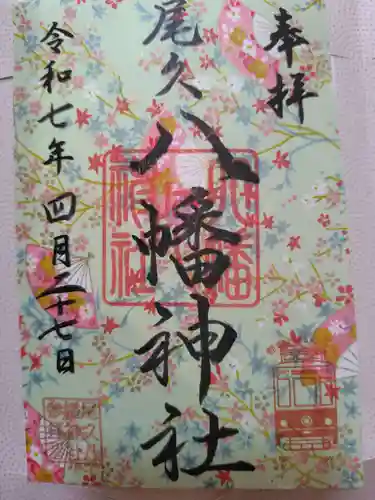 奉拝
尾久
八幡神社
令和七年四月二十七日
八幡
神社